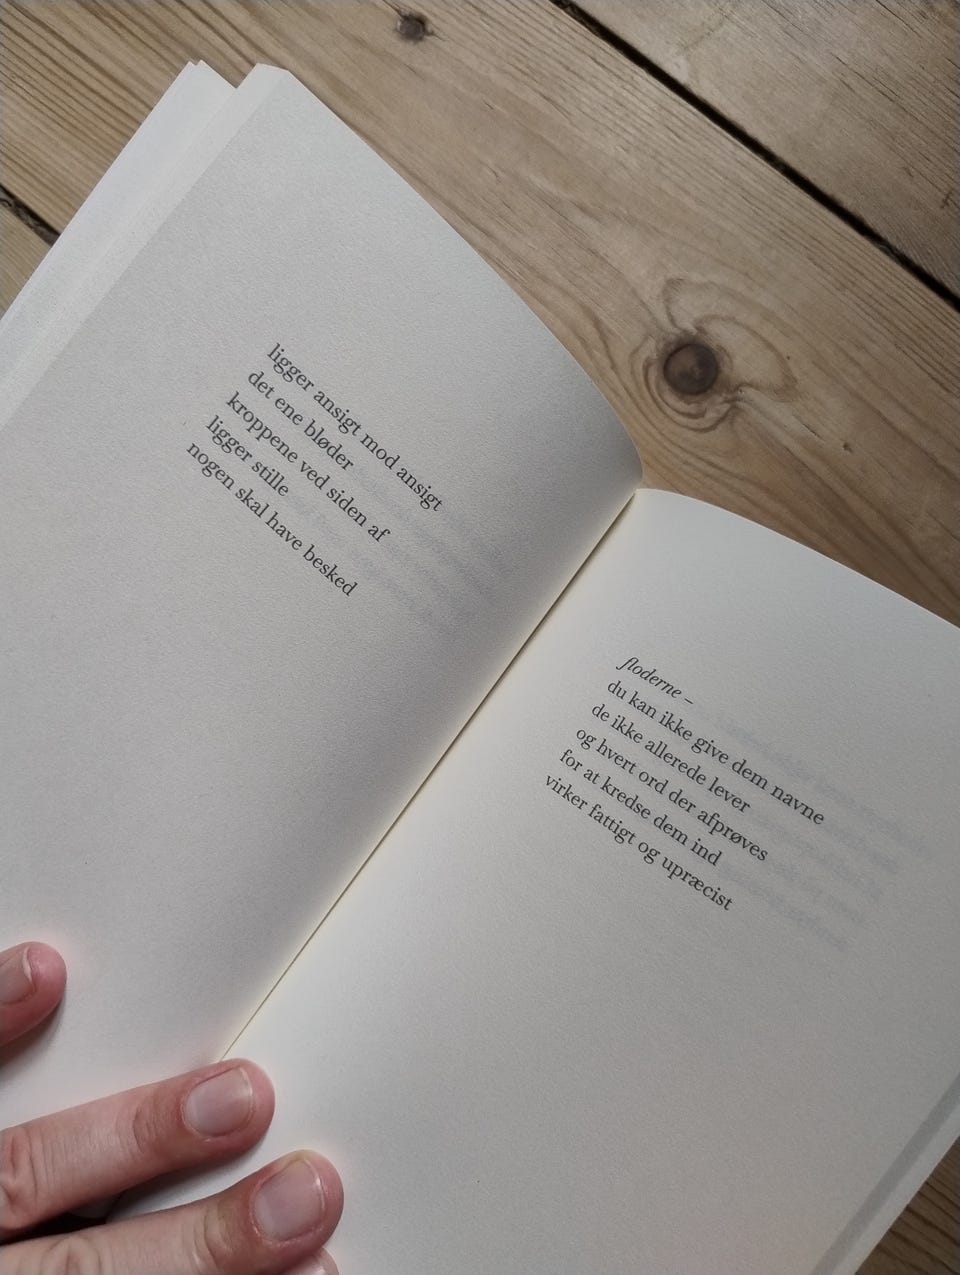 ligger ansigt mod ansigt
det ene bløder
kroppene ved siden af
ligger stille
nogen skal have besked
floderne –
du kan ikke give dem navne
de ikke allerede lever
og hvert ord der afprøves
for at kredse dem ind
virker fattigt og upræcist